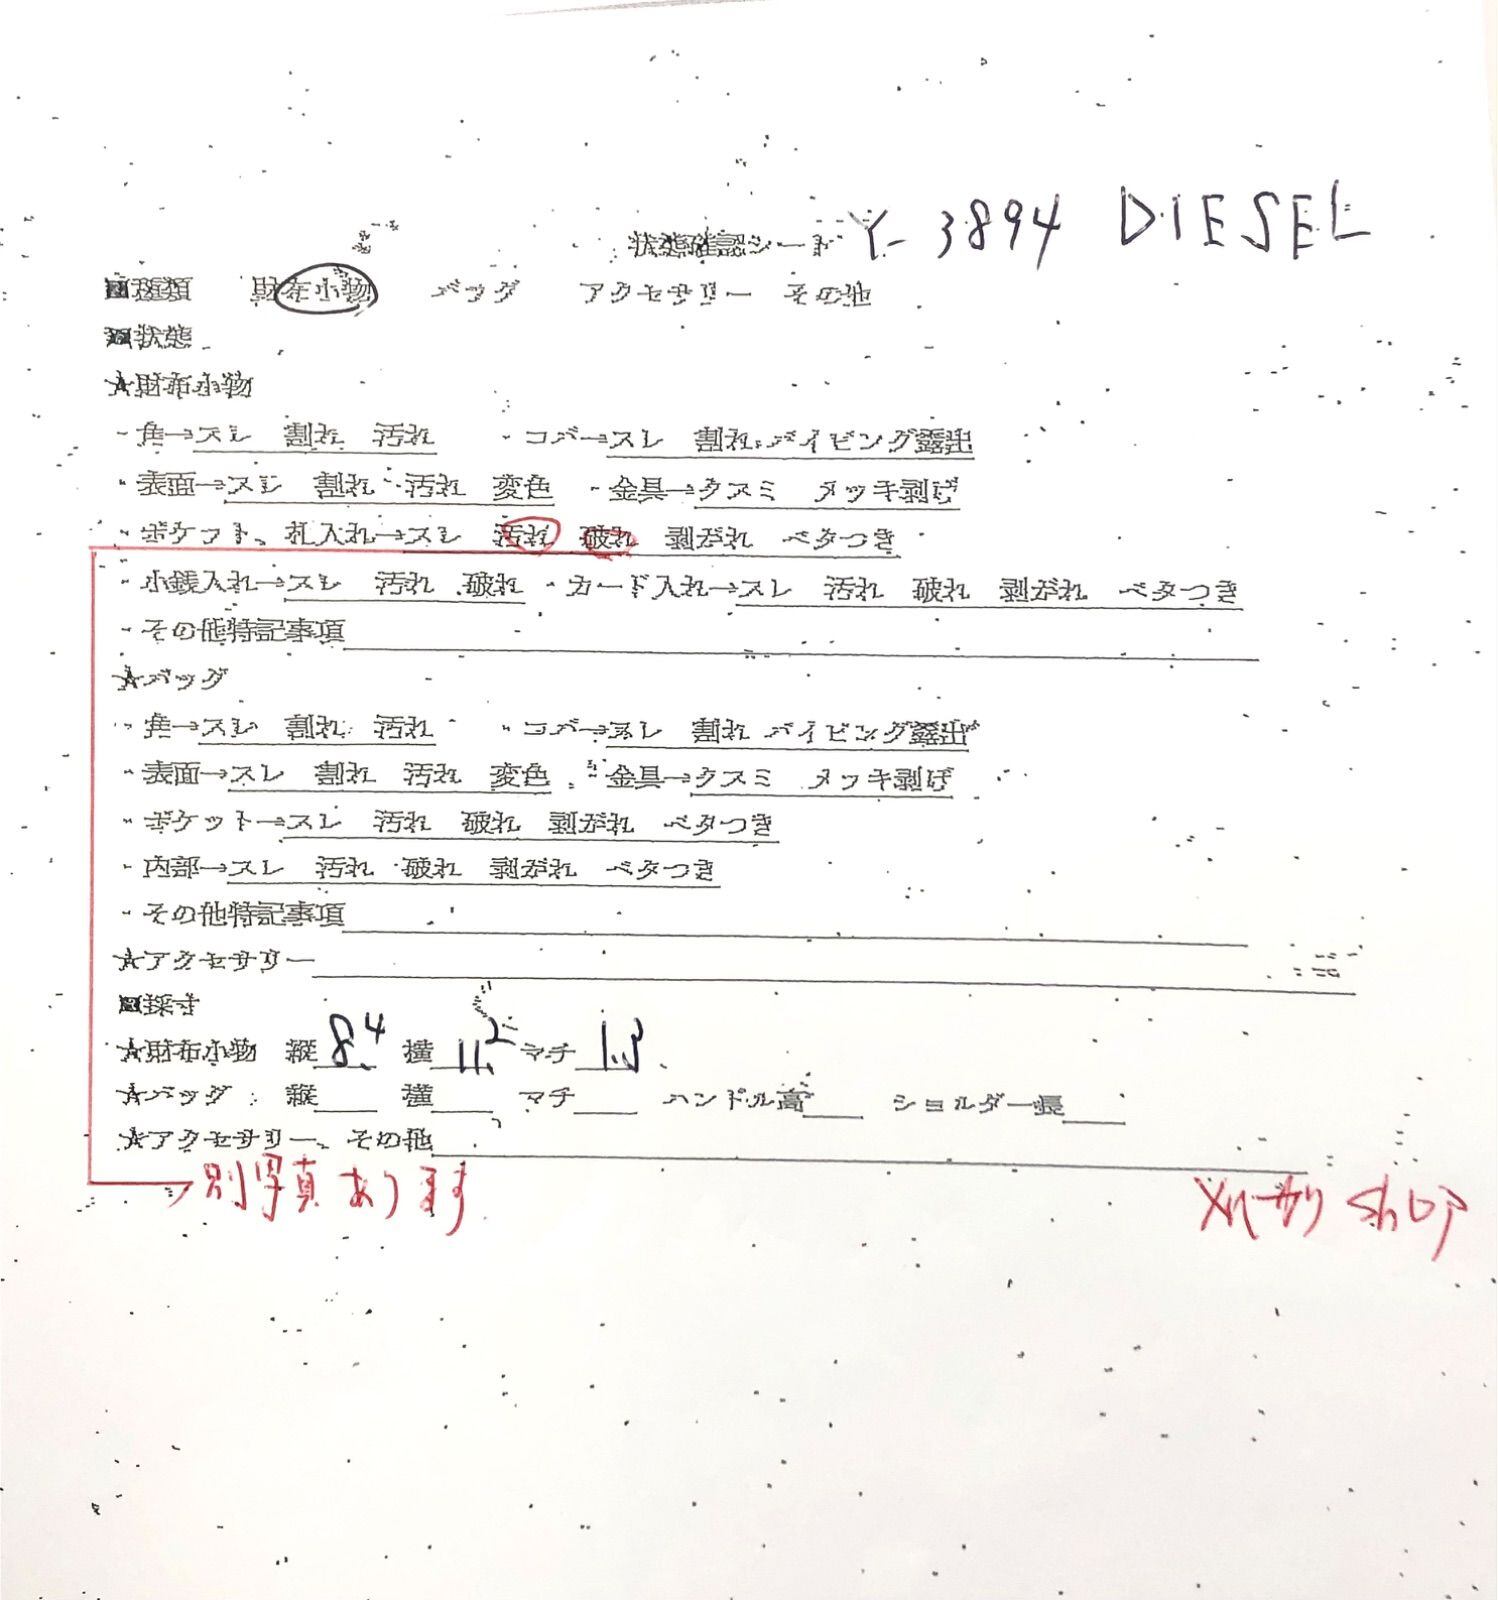 状態確認シート Y-3894 DIESEL
■種類 財布小物 バッグ アクセサリー その他
■状態
★財布小物
・角→スレ 割れ 汚れ ・コバ→スレ 割れ パイピング露出
・表面→スレ 割れ 汚れ 変色 ・金具→クスミ メッキ剥げ
・ポケット、札入れ→スレ 汚れ 破れ 剥がれ ベタつき
・小銭入れ→スレ 汚れ 破れ ・カード入れ→スレ 汚れ 破れ 剥がれ ベタつき
・その他特記事項
★バッグ
・角→スレ 割れ 汚れ ・コバ→スレ 割れ パイピング露出
・表面→スレ 割れ 汚れ 変色 ・金具→クスミ メッキ剥げ
・ポケット→スレ 汚れ 破れ 剥がれ ベタつき
・内部→スレ 汚れ 破れ 剥がれ ベタつき
・その他特記事項
★アクセサリー
■採寸
★財布小物 縦 8.4 横 11.2 マチ 1.3
★バッグ 縦 横 マチ ハンドル高 ショルダー長
★アクセサリー、その他
別写真あります